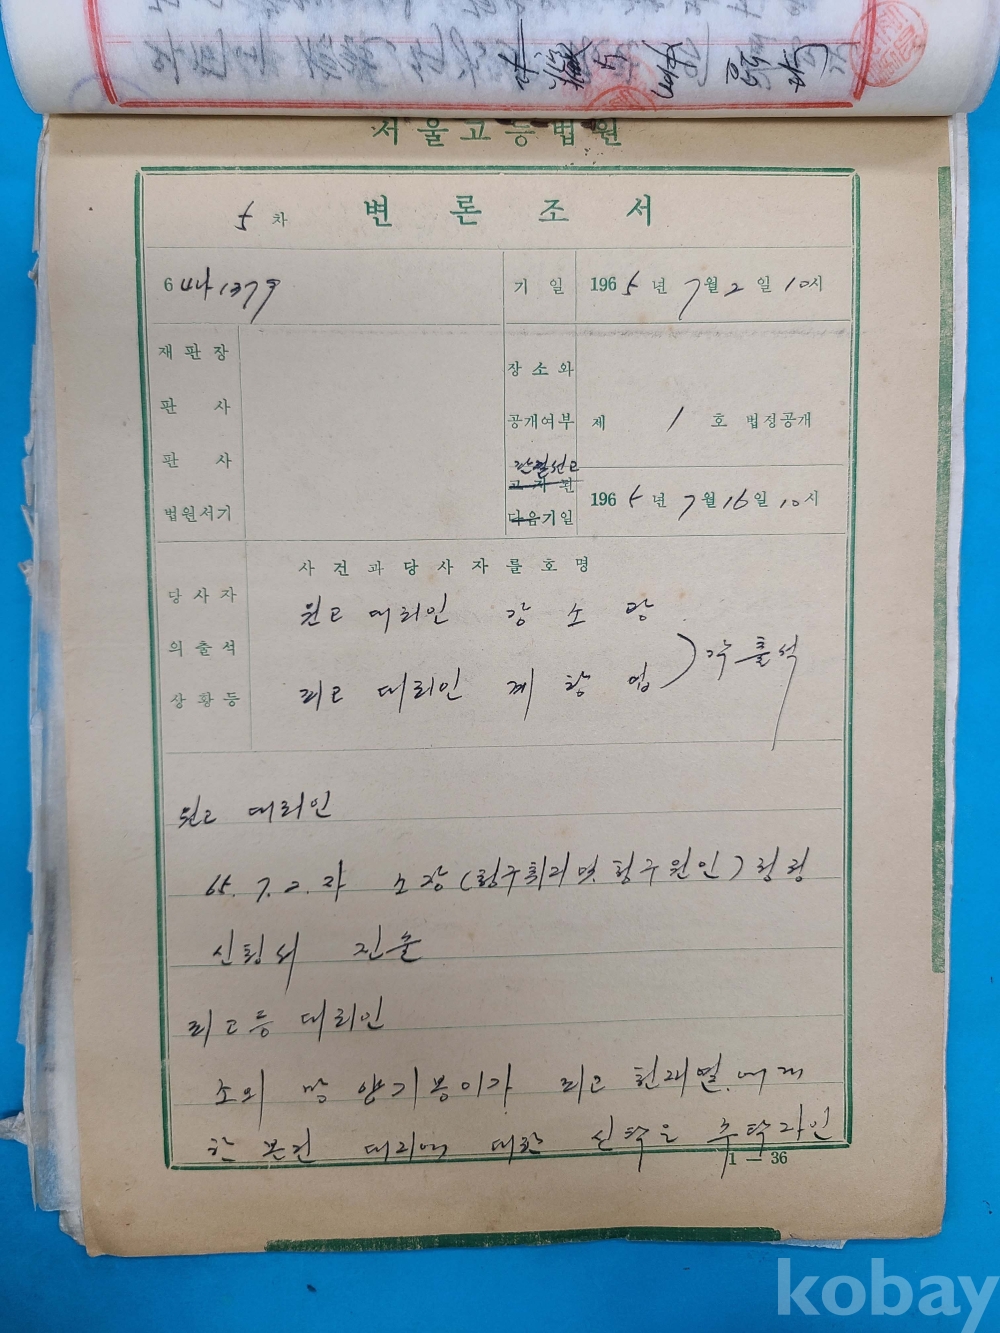 서울고등법원
5차 변론조서
64나1379
기일 1965년 7월 2일 10시
재판장
판사
판사
법원서기
장소와
공개여부 제 1호 법정공개
판결선고
고지된
다음기일 1965년 7월 16일 10시
사건과당사자를호명
당사자
의출석
상황등
원고 대리인 강소
피고 대리인 계창업
각 출석
원고 대리인
65. 7. 2.자 소장(청구취지 및 청구원인) 정정
신청서 진술
피고등 대리인
소외 망 양기봉이가 피고 한재열에게
한 본건 대리에 대한 신탁은 수탁자인
1 — 36
kobay